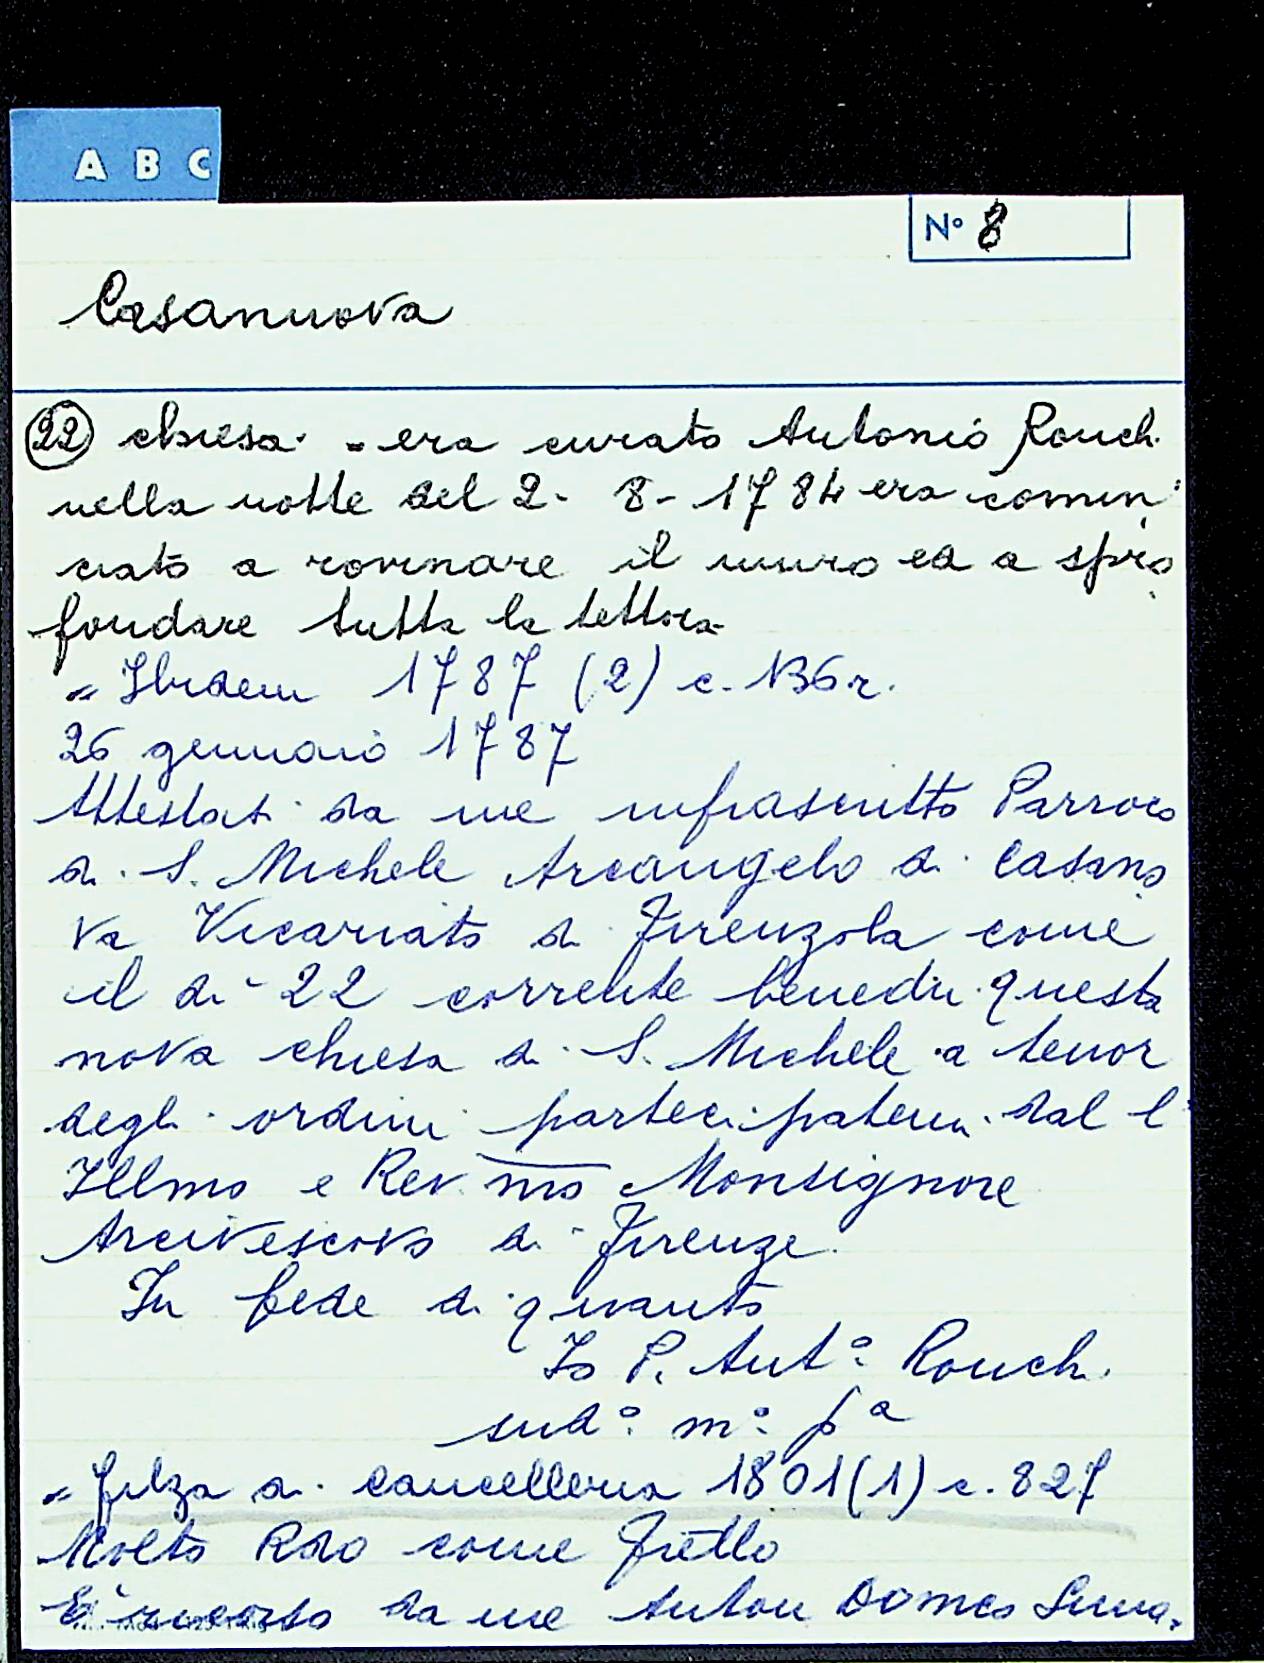 A B C
N° 8
Casanuova
22 chiesa. = era curato Antonio Rouch.
nella notte del 2 - 8 - 1784 era comin
ciato a rovinare il muro ed a spro
fondare tutta la tettoia
= Ibidem 1787 (2) c. 136 r.
26 gennaio 1787
Attestasi da me infrascritto Parroco
di S. Michele Arcangelo di Casano
va Vicariato di Firenzola come
il di 22 corrente benedii questa
nova chiesa di S. Michele a tenor
degli ordini partecipatemi dal l'
Illmo e Rev.mo Monsignore
Arcivescovo di Firenze.
In fede di quanto
Io P. Ant° Rouch.
sud° m° pa
= filza di cancelleria 1801 (1) c. 827
Molto Rdo come Frello
E' ricorso da me Anton Domco